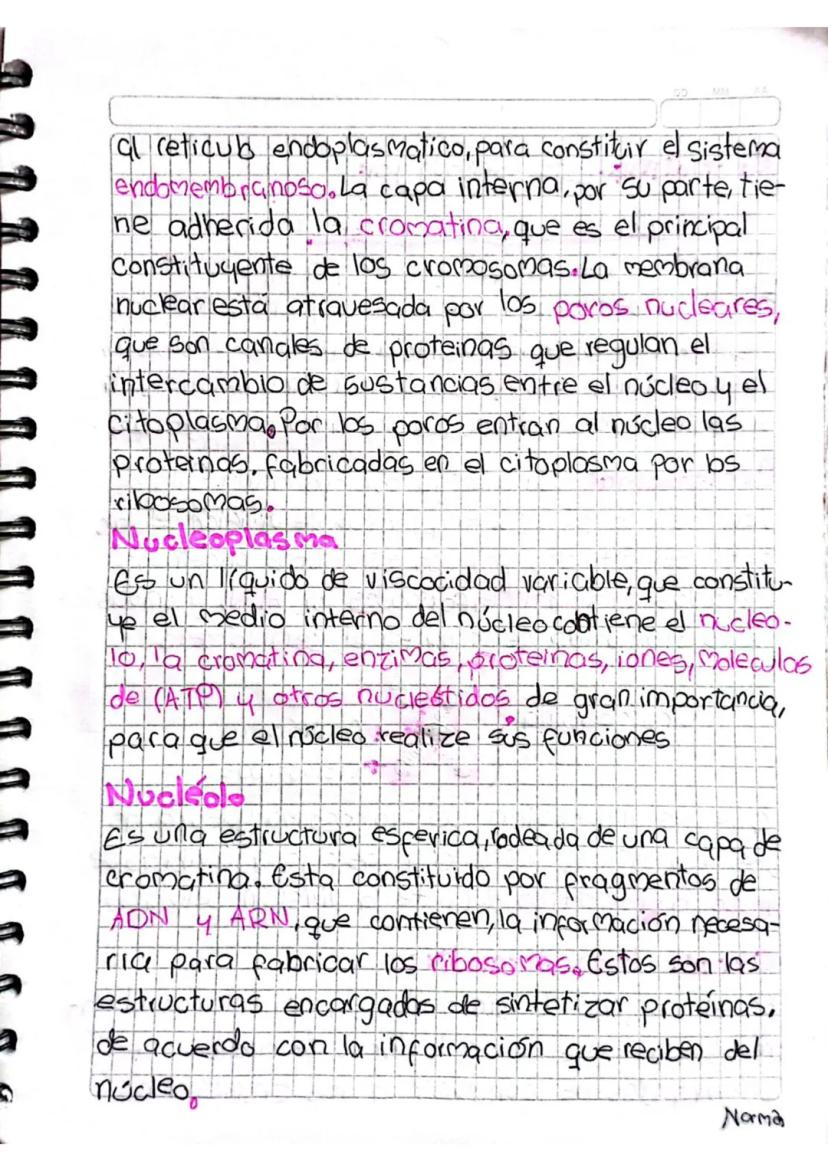 DD MM AA
al reticulo endoplasmatico, para constituir el sistema
endomembranoso. La capa interna, por su parte, tie-
ne adherida la cromatina, que es el principal
constituyente de los cromosomas. La membrana
nuclear está atravesada por los poros nucleares,
que son canales de proteinas que regulan el
intercambio de sustancias entre el núcleo y el
citoplasma. Por los poros entran al núcleo las
proteinas, fabricadas en el citoplasma por los
ribosomas.
Nucleoplasma
Es un líquido de viscocidad variable, que constitu-
ye el medio interno del núcleo contiene el nucleo-
lo, la cromatina, enzimas, proteinas, iones, moleculas
de (ATP) y otros nucleótidos de gran importancia,
para que el núcleo realize sus funciones
Nucléolo
Es una estructura esferica, rodeada de una capa de
cromatina. Esta constituido por fragmentos de
ADN y ARN, que contienen, la información necesa-
ria para fabricar los ribosomas. Estos son las
estructuras encargadas de sintetizar proteínas,
de acuerdo con la información que reciben del
núcleo.
Norma